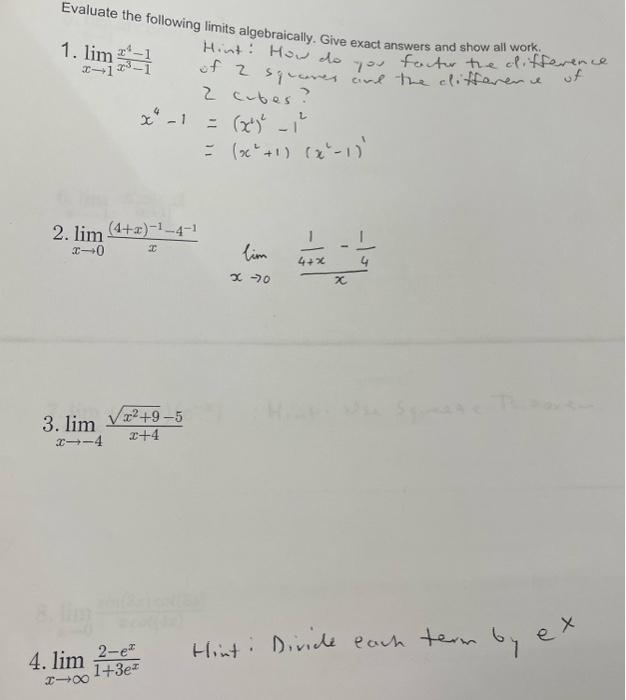 Evaluate the following limits algebraically. Give exact answers and show all work.
1. lim x→1 (x⁴−1)/(x³−1) Hint: How do you factor the difference
of 2 squares and the difference of
2 cubes?
x⁴ − 1 = (x²)² − 1²
= (x²+1) (x²−1)
2. lim x→0 ((4+x)⁻¹−4⁻¹)/x
lim x→0 (1/(4+x) − 1/4)/x
3. lim x→−4 (√(x²+9)−5)/(x+4)
Hint: Use Squeeze Theorem
4. lim x→∞ (2−eˣ)/(1+3eˣ) Hint: Divide each term by eˣ